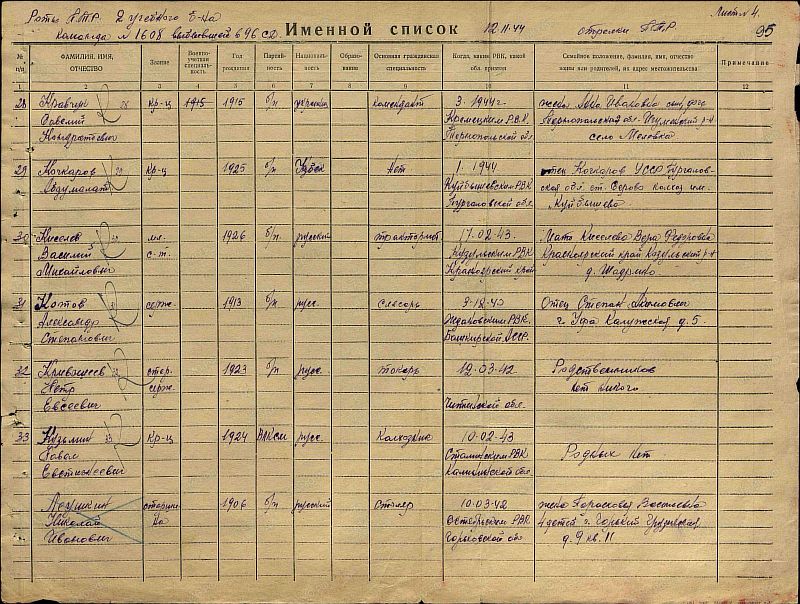 Роты П.Т.Р. 2 учебного Б-на
Лист № 4.
Команда № 1608 696 СД Именной список 12.11.44 стрелки П.Т.Р
95
№ п/п
ФАМИЛИЯ, ИМЯ, ОТЧЕСТВО
Звание
Военно-учетная специальность
Год рождения
Партийность
Национальность
Образование
Основная гражданская специальность
Когда, каким РВК, какой обл. призван
Семейное положение, фамилия, имя, отчество жены или родителей, их адрес местожительства
Примечание
1 2 3 4 5 6 7 8 9 10 11 12
28 Кравчук 28 кр-ц 1915 1915 б/п украинец комендант 3. 1944 г. жена Анна Ивановна
Савелий Кременецк. Р.В.К. Тернопольская обл. р-н
Кондратович Тернопольской обл. село
29 Кочкаров 29 кр-ц 1925 б/п Узбек Нет 1. 1944 отец Кочкаров УССР
Абдумалат Куйбышевском РВК обл. ст. Серова колхоз им.
обл. Куйбышева
30 Киселев 30 мл. 1926 б/п русский тракторист 17.02.43. Мать Киселева Вера Федоровна
Василий с-т. РВК Красноярский край р-н
Михайлович Красноярский край д.
31 Котов серж. 1913 б/п русс. Слесарь 3-12-40 Отец Степан
Александр Ждановским РВК. г. Уфа Калужская д. 5.
Степанович Башкирской АССР.
32 Кривошеев стар. 1923 б/п русс. токарь 12.03.42 Родственников
Петр серж. нет никого
Евсеевич Читинской обл.
33 Кузьмин 33 кр-ц 1924 ВЛКСМ русс. Колхозник 10-02-43
Павел Сталинским РВК Родных нет
Евстигнеевич Калининской обл.
старши- 1906 б/п русский Столяр 10.03.42 жена Васильевна
Николай на Октябрьским РВК 4 детей г. Горький Грузинская
Иванович Горьковской обл д. 9 кв. 11